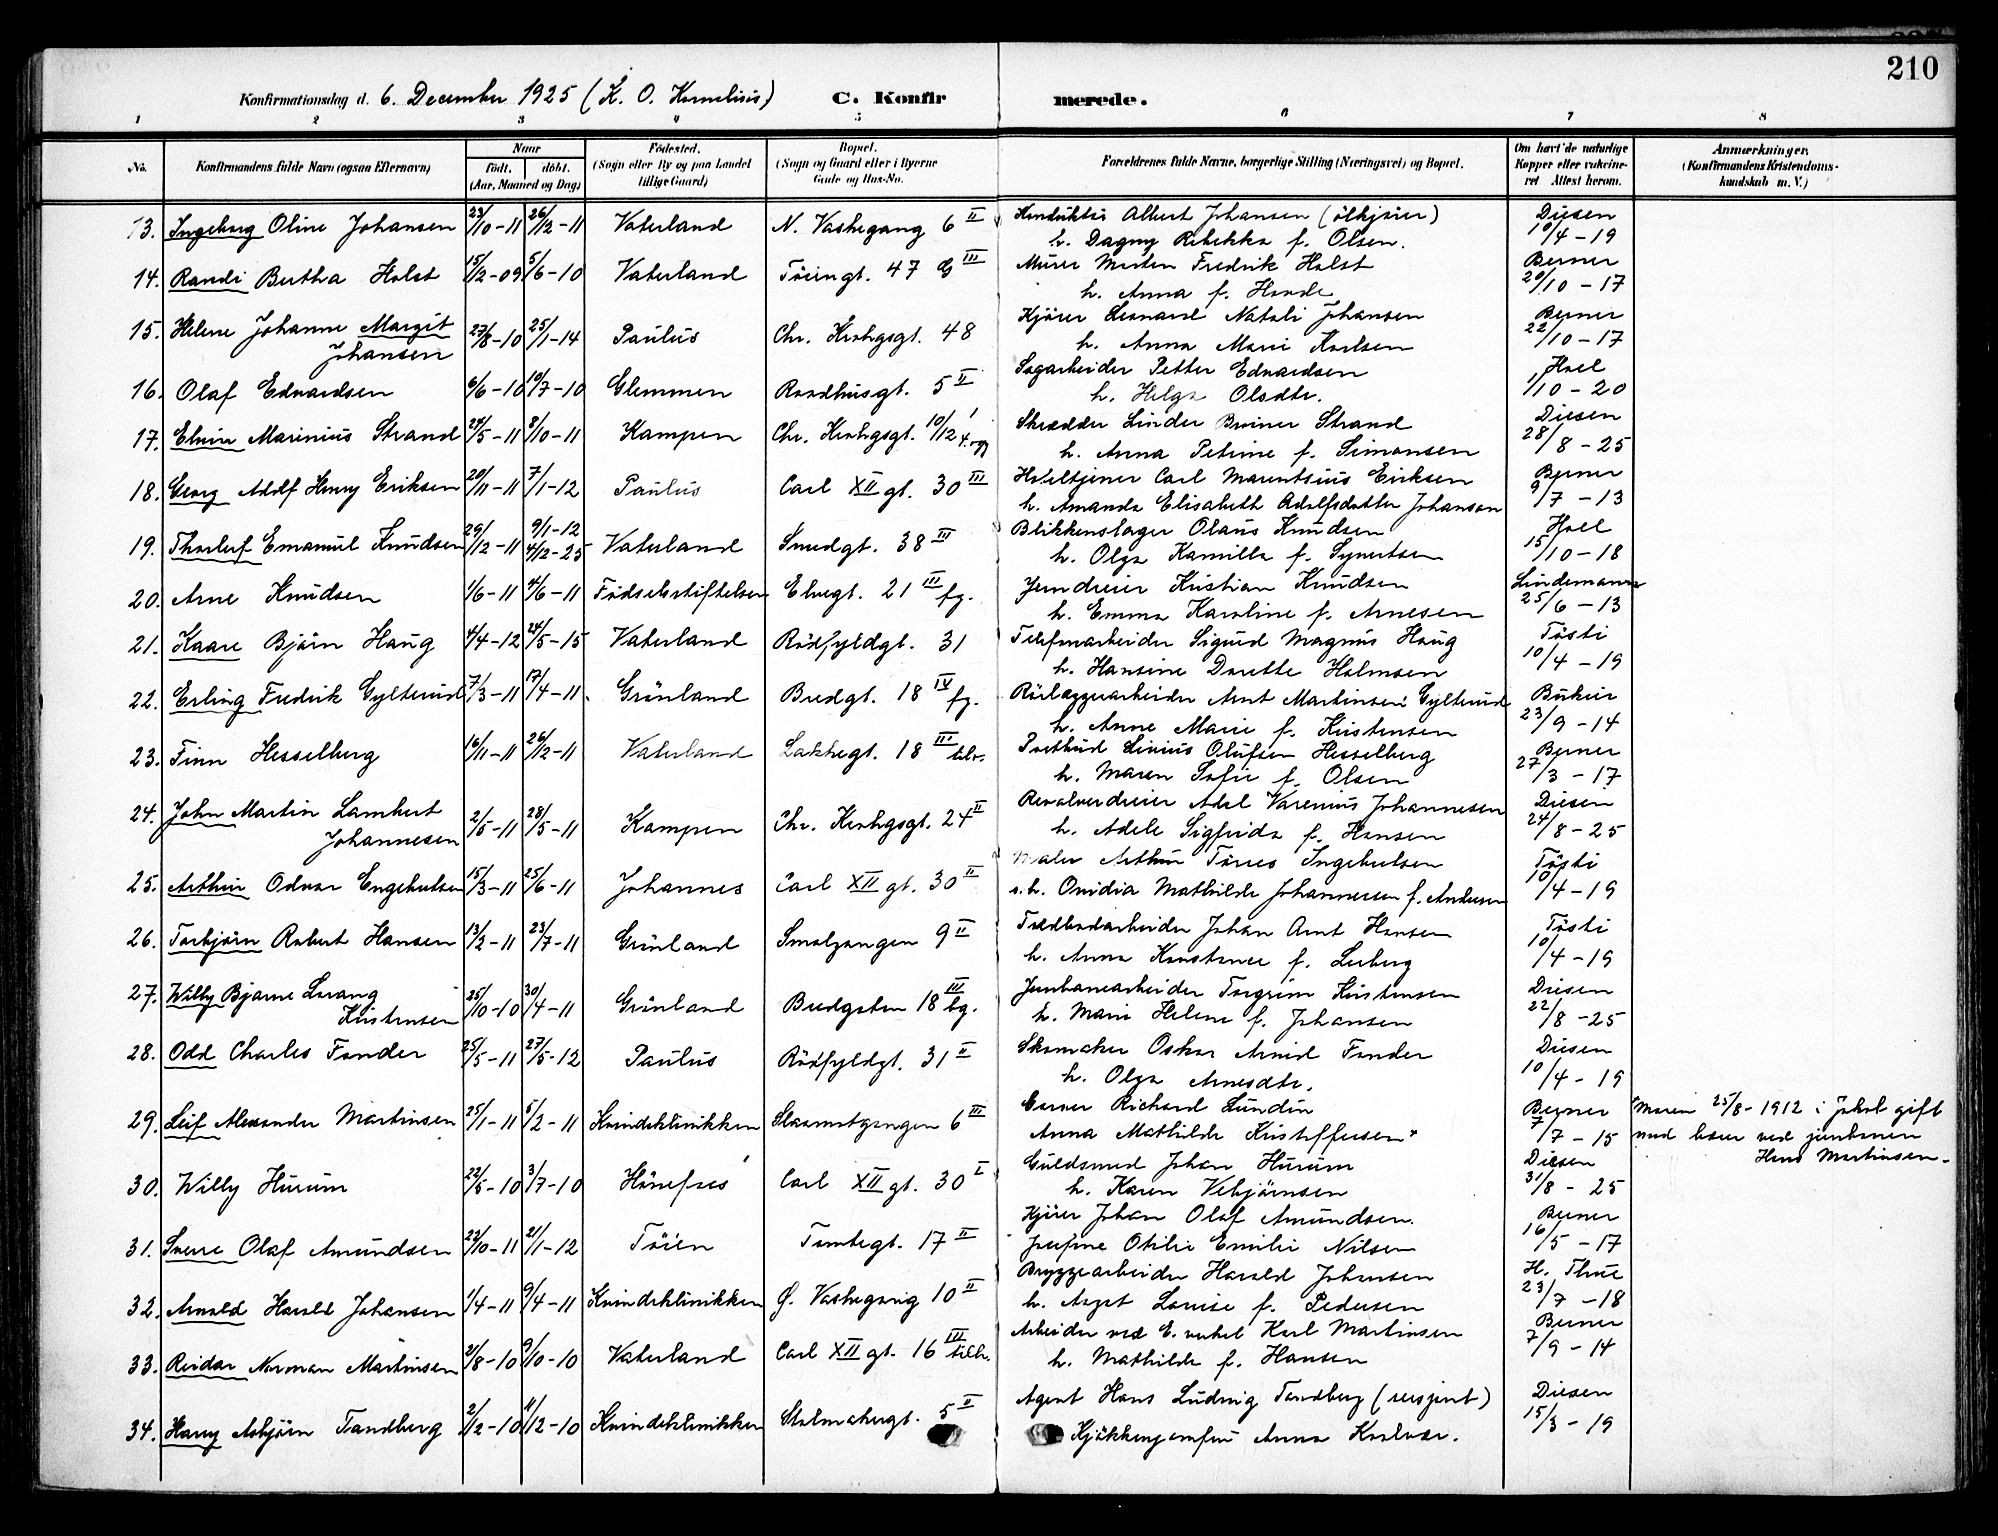 210
Konfirmationsdag d. 6. December 1925 (K. O. Kornelius) C. Konfirmerede.
1 2 3 4 5 6 7 8
No. Konfirmandens fulde Navn (ogsaa Efternavn) Naar født. døbt. (Aar, Maaned og Dag) Fødested. (Sogn eller By og paa Landet tillige Gaard) Bopæl. (Sogn og Gaard eller i Byerne Gade og Hus-No. Forældrenes fulde Navne, borgerlige Stilling (Næringsvei) og Bopæl. Om havt de naturlige Kopper eller vaccineret Attest herom. Anmærkninger. (Konfirmandens Kristendomskundskab m. V.)
13. Ingeborg Oline Johansen 23/10-11 26/12-11 Vaterland N. Vaskegang 6 II Konduktør Albert Johansen (ølkjører) Diesen
h. Dagny Rebekka f. Olsen. 10/4-19
14. Randi Bertha Holst 15/12-09 5/6-10 Vaterland Tøiengt. 47 G III Murer Morten Fredrik Holst Berner
h. Anna f. Hovde 20/10-17
15. Helene Johanne Margit Johansen 27/8-10 25/1-14 Paulus Chr. Krohgsgt. 48 Kjører Leonard Natali Johansen Berner
h. Anna Marie Karlsen 22/10-17
16. Olaf Edvardsen 6/6-10 10/7-10 Glemmen Raadhusgt. 5 II Sagarbeider Petter Edvardsen Hoel
h. Helga Olsdtr. 1/10-20
17. Elvin Marinius Strand 24/5-11 8/10-11 Kampen Chr. Krohgsgt. 10/12 Skrædder Linder Strand Diesen
h. Anna Petrine f. Simonsen 28/8-25
18. Georg Adolf Henry Eriksen 20/11-11 7/1-12 Paulus Carl XII gt. 30 III Hoteltjener Carl Marentsius Eriksen Berner
h. Amanda Elisabeth Adolfsdatter Johanson 9/7-13
19. Thorleif Emanuel Knudsen 29/12-11 9/1-12 4/12-25 Vaterland Smedgt. 38 III Blikkenslager Olaus Knudsen Hoel
h. Olga Kamilla f. Syvertsen 15/10-18
20. Arne Knudsen 1/6-11 4/6-11 Fødselsstiftelsen Elvegt. 21 III fg. Jerndreier Kristian Knudsen Lindemann
h. Emma Karoline f. Arnesen 25/6-13
21. Kaare Bjørn Haug 4/4-12 24/5-15 Vaterland Rødfyldgt. 31 Telefonarbeider Sigurd Magnus Haug Tøsti
h. Hansine Dorette Holmsen 10/4-19
22. Erling Fredrik Gylterud 7/3-11 17/4-11 Grønland Bredgt. 18 IV fg. Rørlæggerarbeider Arnt Martinsen Gylterud
h. Anne Marie f. Kristensen 23/9-14
23. Finn Hesselberg 16/11-11 26/12-11 Vaterland Lakkegt. 18 III Postbud Sivius Olufsen Hesselberg Berner
h. Maren Sofie f. Olsen 27/3-17
24. John Martin Lambert Johannesen 2/5-11 28/5-11 Kampen Chr. Krohgsgt. 24 II Revolverdreier Adel Varenius Johannesen Diesen
h. Adele Sigfrida f. Hansen 24/8-25
25. Arthur Odvar Engebretsen 15/3-11 25/6-11 Johannes Carl XII gt. 30 II Maler Arthur Tørres Ingebretsen Tøsti
s.h. Ovidia Mathilde Johannessen f. Andersen 10/4-19
26. Torbjørn Robert Hansen 13/2-11 23/7-11 Grønland Smalgangen 9 II Johan Arnt Hansen Tøsti
h. Anna Konstance f. Leeberg 10/4-19
27. Willy Bjarne Lorang Kristensen 25/10-10 30/4-11 Grønland Bredgaten 18 III bg. Jernbanearbeider Torgrim Kristensen Diesen
h. Marie Helene f. Johansen 22/8-25
28. Odd Charles Fonder 25/5-11 27/5-12 Paulus Rødfyldgt. 31 II Skomaker Oskar Arvid Fonder Diesen
h. Olga Arnesdtr. 10/4-19
29. Leif Alexander Martinsen 25/1-11 5/2-11 Kvindeklinikken Slaamotgangen 6 III Garver Richard Lundin Berner Moren 25/8-1912 i Jakob gift
Anna Mathilde Kristoffersen 7/7-15 med bærer ved jernbanen
Hans Martinsen.
30. Willy Hurum 22/5-10 3/7-10 Hønefos Carl XII gt. 30 I Guldsmed Johan Hurum Diesen
h. Karen Vebjørnsen 31/8-25
31. Sverre Olaf Amundsen 22/10-11 21/1-12 Tøien Tomtegt. 17 II Kjører Johan Olaf Amundsen. Berner
Josefine Otilie Emilie Nilsen 16/5-17
32. Arnold Harald Johansen 1/4-11 9/4-11 Kvindeklinikken Ø. Vaskegang 10 II Bryggearbeider Harald Johansen H. Thue
h. Aagot Lovise f. Pedersen 23/7-18
33. Reidar Norman Martinsen 21/8-10 9/10-10 Vaterland Carl XII gt. 16 III tilb. Arbeider ved E. verket Karl Martinsen Berner
h. Mathilde f. Hansen 7/9-14
34. Harry Asbjørn Tandberg 2/12-10 11/12-10 Kvindeklinikken Stolmakergt. 5 II Agent Hans Ludvig Tandberg (reisjent) Diesen
Kjøkkenjomfru Anna Kvalvær. 15/3-19